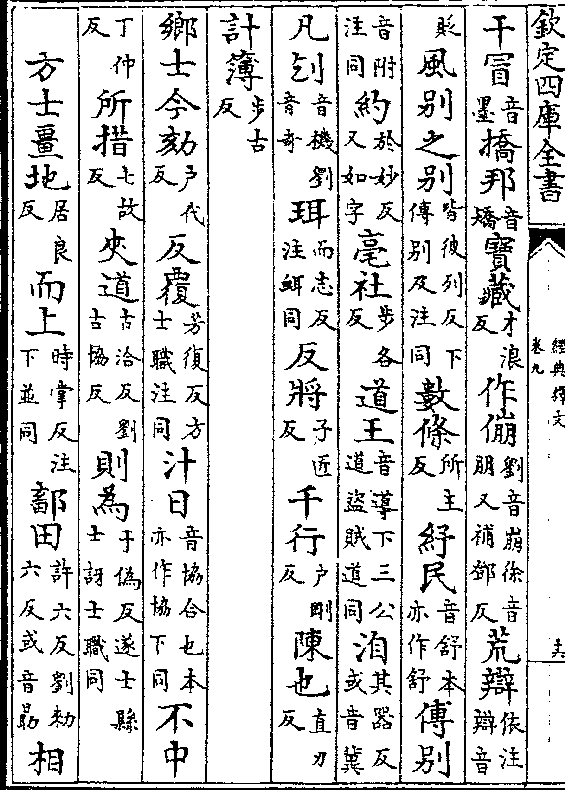 欽定四庫全書
經典釋文
卷九
干冒音墨撟邦音矯寶藏才浪反作傰劉音崩徐音朋又補鄧反荒辯依注辯音
貶風别之别皆彼列反下傅别及注同數條所主反紓民音舒本亦作舒傅别
音附注同約於妙反又如字亳社步各反道王音導下三公道盜賊道同洎其器反或音冀
凡刉音機劉音奇珥而志反注衈同反將子匠反千行户剛反陳也直刃反
計簿步古反
鄉士今劾户代反反覆芳復反方士職注同汁日音協合也本亦作協下同不中
丁仲反所措七故反夾道古洽反劉古協反則為于偽反遂士縣士訝士職同
方士畺地居良反而上時掌反注下並同鄐田許六反劉勑六反或音勗相